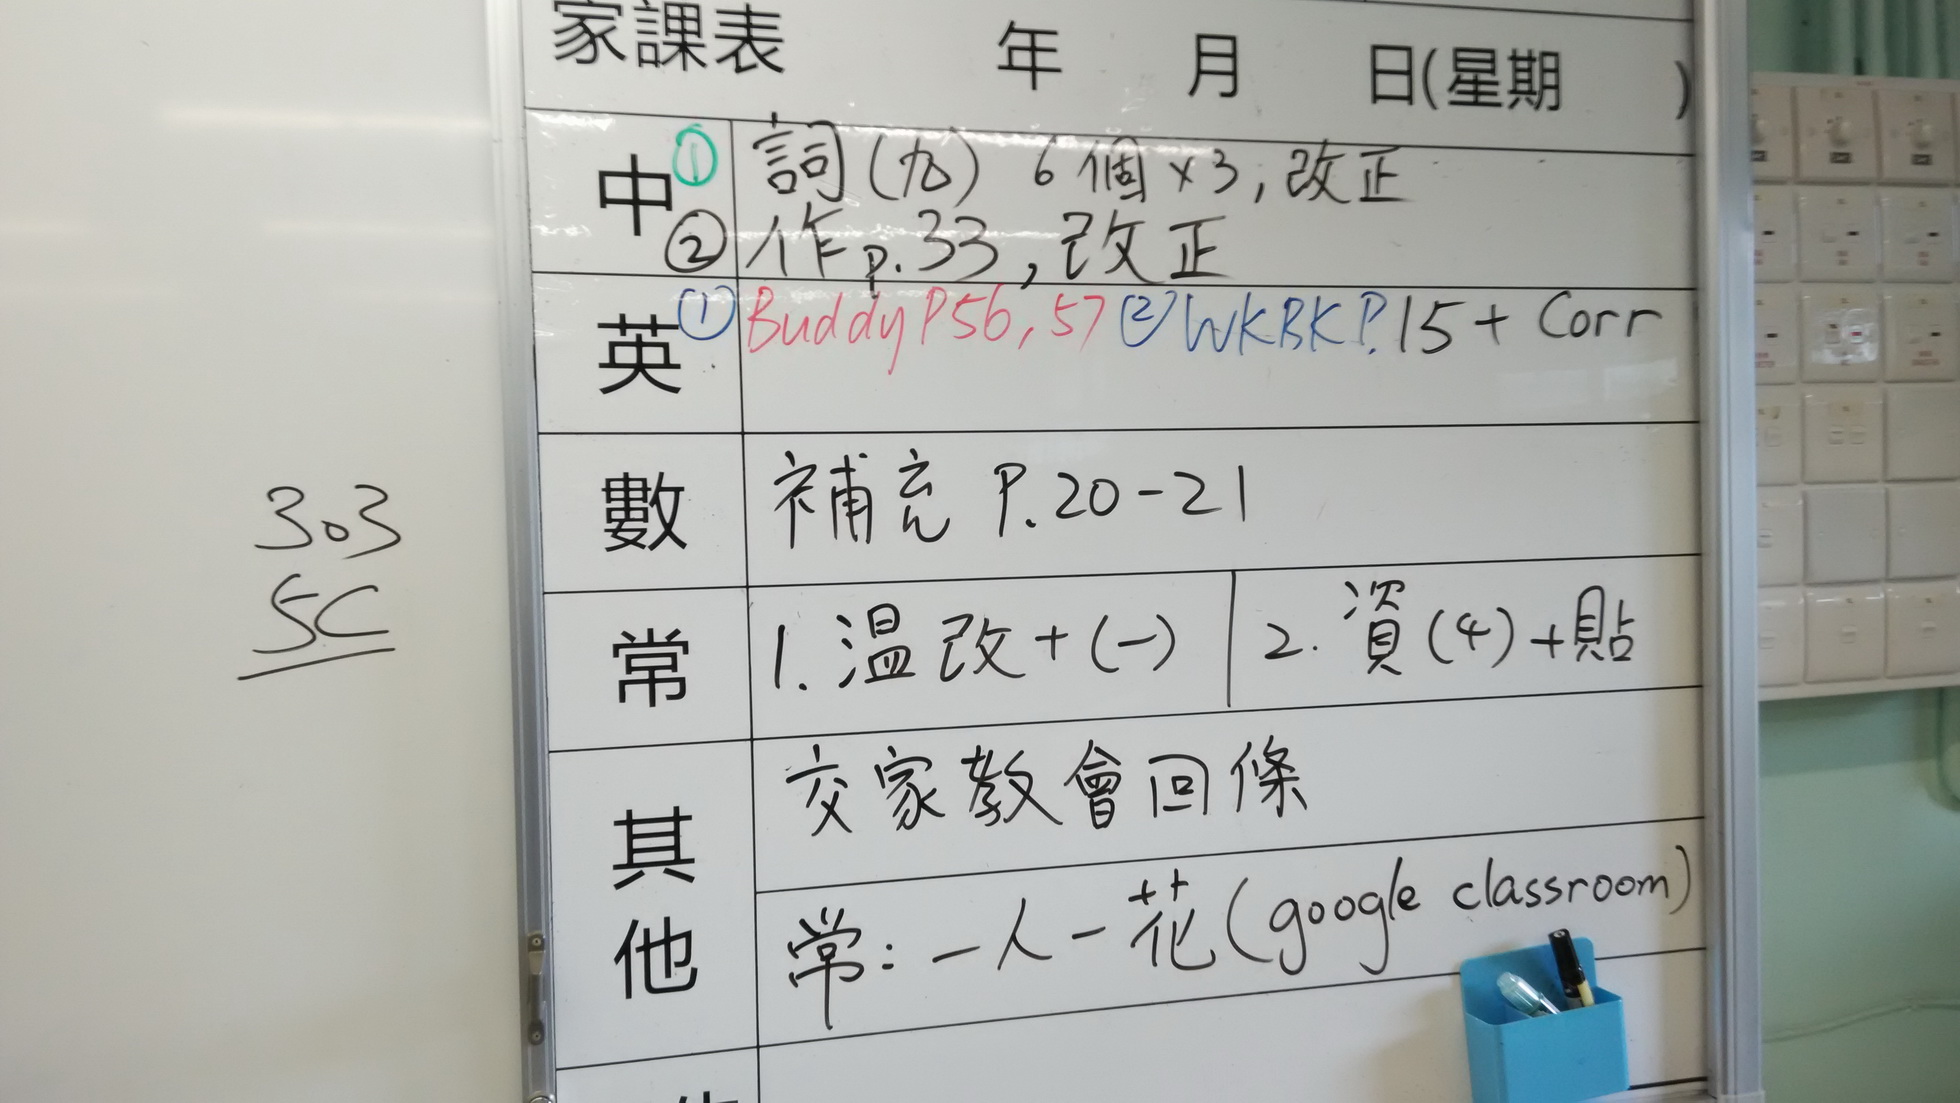 家課表 年 月 日(星期 )
中 ① 詞(九) 6個×3,改正
② 作p.33,改正
英 ① Buddy P56,57 ② WKBK P.15 + Corr
數 補充 P.20-21
常 1.温改+(一) 2.資(4)+貼
其他 交家教會回條
常:一人一花(google classroom)
303
5C